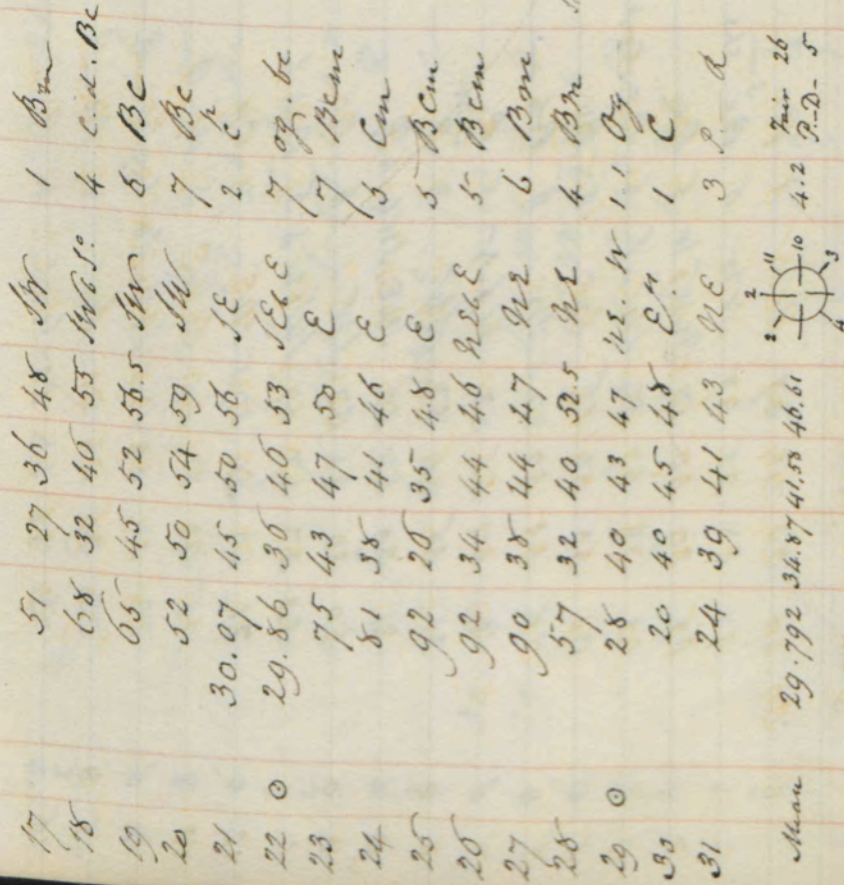 17 51 27 36 48 SW 1 Bm
18 68 32 40 55 SWbS° 4 c.d. Bc
19 65 45 52 56.5 SW 6 BC
20 52 50 54 59 SW 7 Bc
21 30.07 45 50 56 SE 2
22 ⊙ 29.86 36 40 53 SEbE 7 og. bc
23 75 43 47 50 E 7 Bcm
24 81 38 41 46 E 5 Cm
25 92 26 35 48 E 5 Bcm
26 92 34 44 46 NEbE 5 Bcm
27 90 38 44 47 NE 6 Bm.
28 57 32 40 52.5 NE 4 Bm
29 ⊙ 28 40 43 47 NE. W 1.1 Og
30 20 40 45 48 E" 1 C
31 24 39 41 43 NE 3
Mean 29.792 34.87 41.58 46.61 2 2 11 10 3 4.2 Fair 26
P.-D- 5